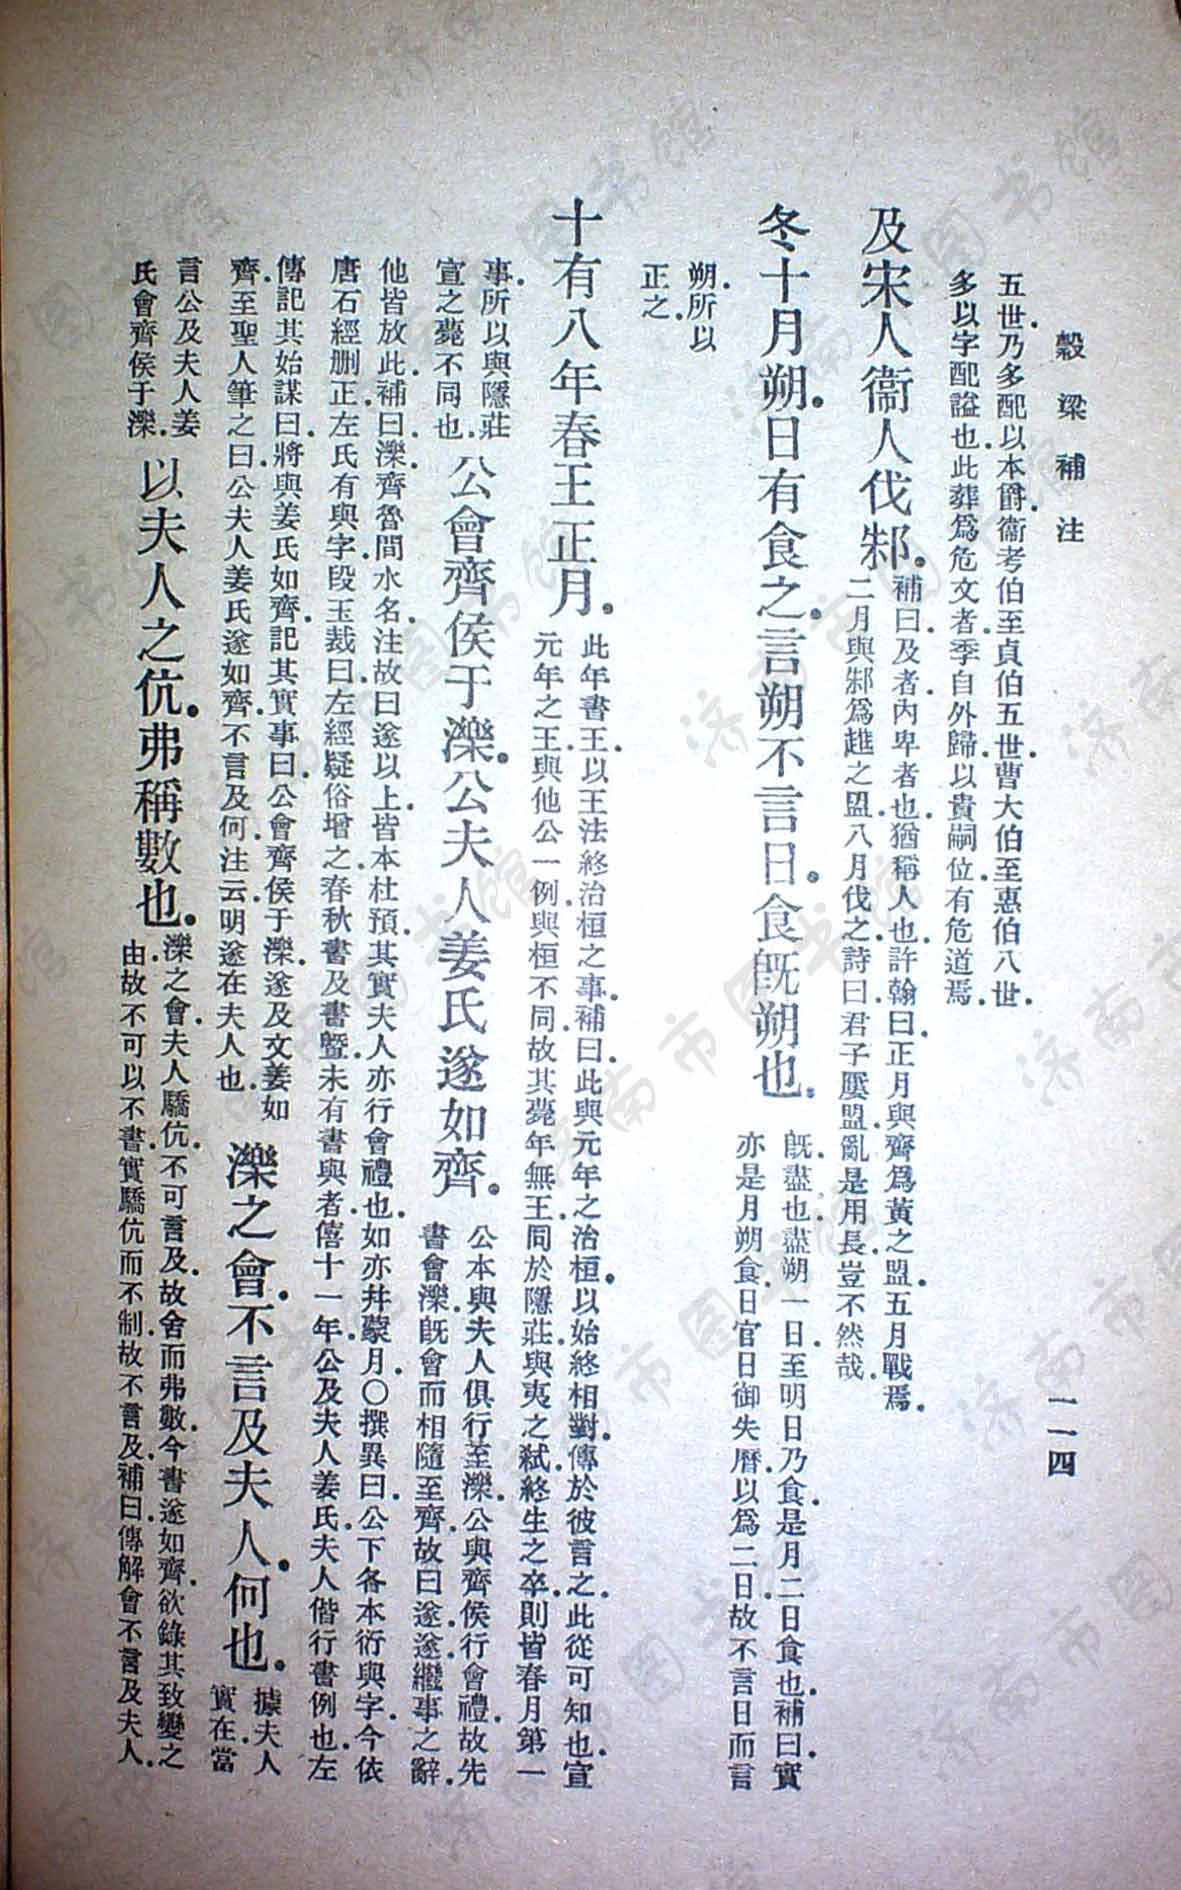 穀梁補注
一一四
五世.乃多配以本爵.衞考伯至貞伯五世.曹大伯至惠伯八世.
多以字配謚也.此葬爲危文者.季自外歸.以貴嗣位.有危道焉.
及宋人衞人伐邾.
補曰.及者.內卑者也.猶稱人也.許翰曰.正月與齊爲黃之盟.五月戰焉.
二月與邾爲趡之盟.八月伐之.詩曰.君子屢盟.亂是用長.豈不然哉.
冬十月朔.日有食之.言朔不言日.食既朔也.
既.盡也.盡朔一日.至明日乃食.是月二日食也.補曰.實
亦是月朔食.日官日御失曆.以爲二日.故不言日而言
朔.所以
正之.
十有八年春王正月.
此年書王.以王法終治桓之事.補曰.此與元年之治桓.以始終相對.傳於彼言之.此從可知也.宣
元年之王.與他公一例.與桓不同.故其薨年無王.同於隱莊.與夷之弒.終生之卒.則皆春月第一
事.所以與隱莊
宣之薨不同也.
公會齊侯于濼.公夫人姜氏遂如齊.
公本與夫人俱行至濼.公與齊侯行會禮.故先
書會濼.既會而相隨至齊.故曰遂.遂.繼事之辭.
他皆放此.補曰.濼.齊魯間水名.注故曰遂以上.皆本杜預.其實夫人亦行會禮也.如亦幷蒙月.○撰異曰.公下各本衍與字.今依
唐石經删正.左氏有與字.段玉裁曰.左經疑俗增之.春秋書及書暨.未有書與者.僖十一年.公及夫人姜氏.夫人偕行書例也.左
傳記其始謀曰.將與姜氏如齊.記其實事曰.公會齊侯于濼.遂及文姜如
齊.至聖人筆之曰.公夫人姜氏遂如齊.不言及何.注云.明遂在夫人也.
濼之會.不言及夫人.何也.
據夫人
實在.當
言公及夫人姜
氏會齊侯于濼.
以夫人之伉.弗稱數也.
濼之會.夫人驕伉.不可言及.故舍而弗數.今書遂如齊.欲錄其致變之
由.故不可以不書.實驕伉而不制.故不言及.補曰.傳解會不言及夫人.